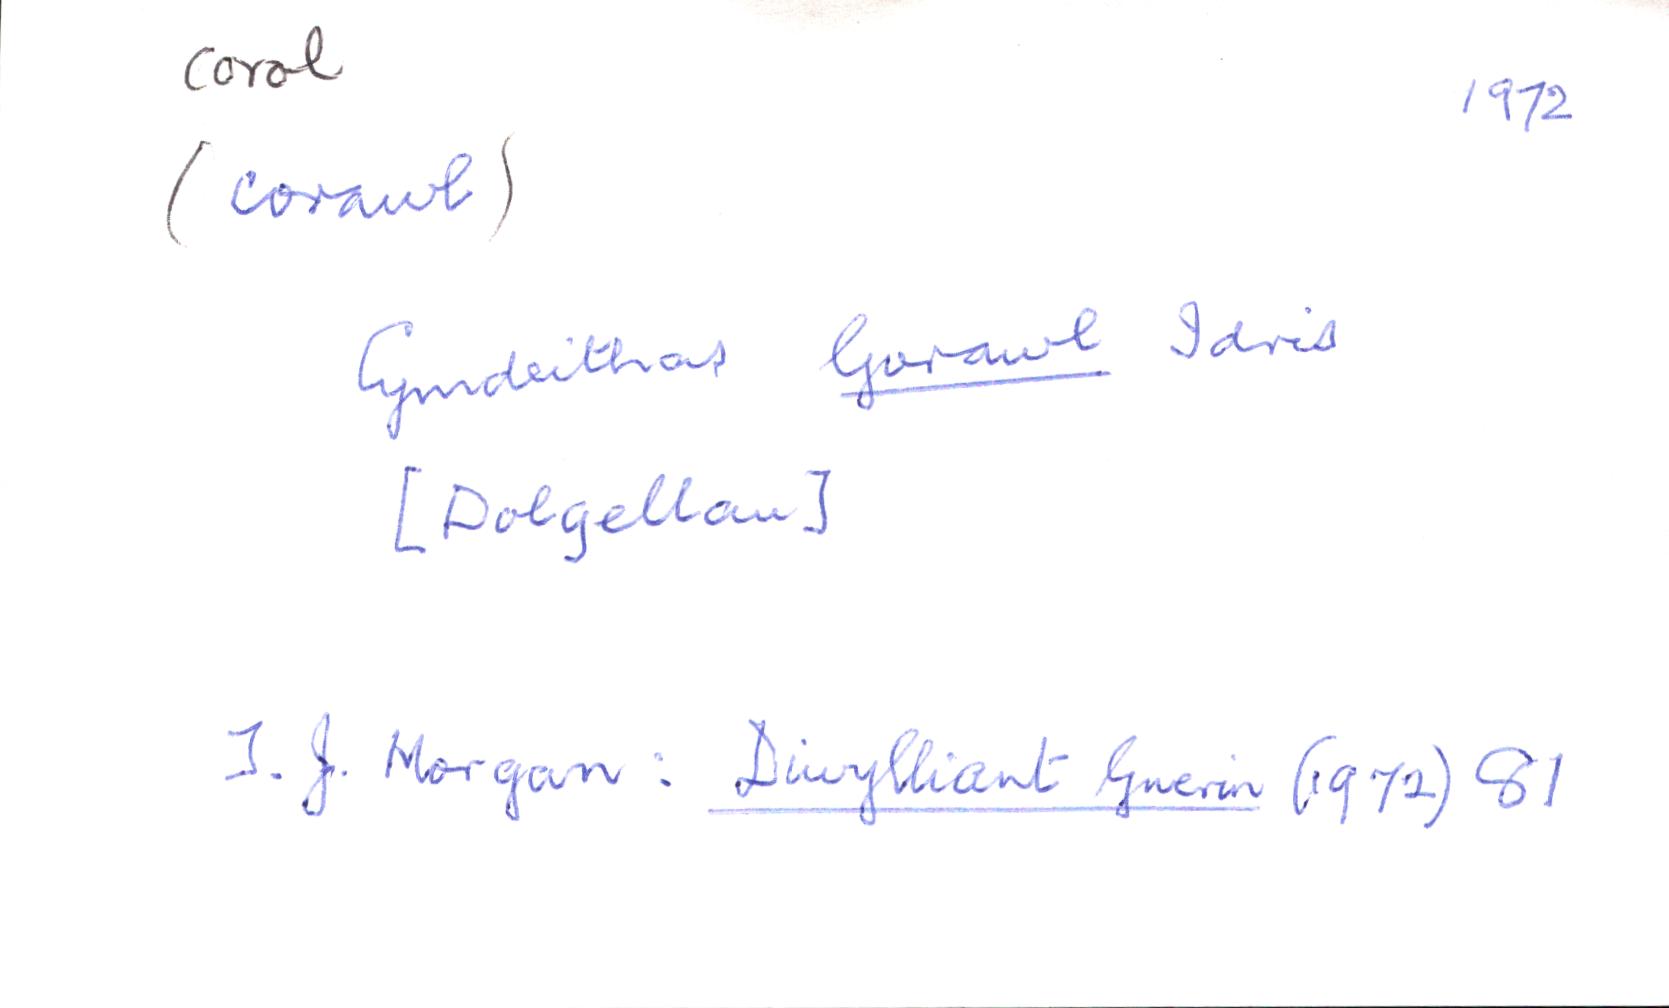 corol
1972
(corawl)
Cymdeithas Gorawl Idris
[Dolgellau]
T. J. Morgan: Diwylliant Gwerin (1972) 81